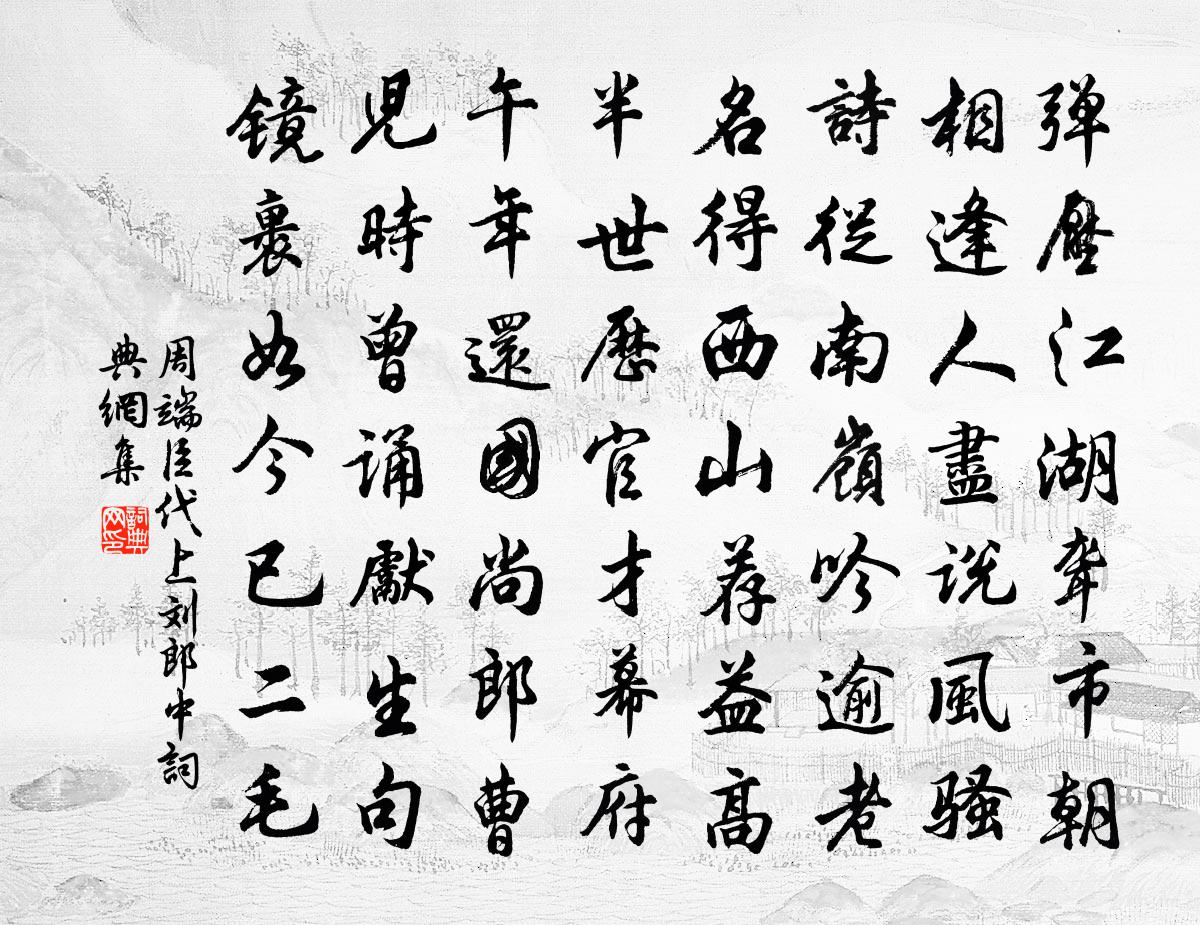 弹壓江湖聳市朝
相逢人盡説風騷
詩從南嶺吟逾老
名得西山荐益高
半世歷官才幕府
午年還國尚郎曹
児時曾诵獻生句
镜裏如今已二毛
周端臣代上刘郎中詞
典網集
詞典网印